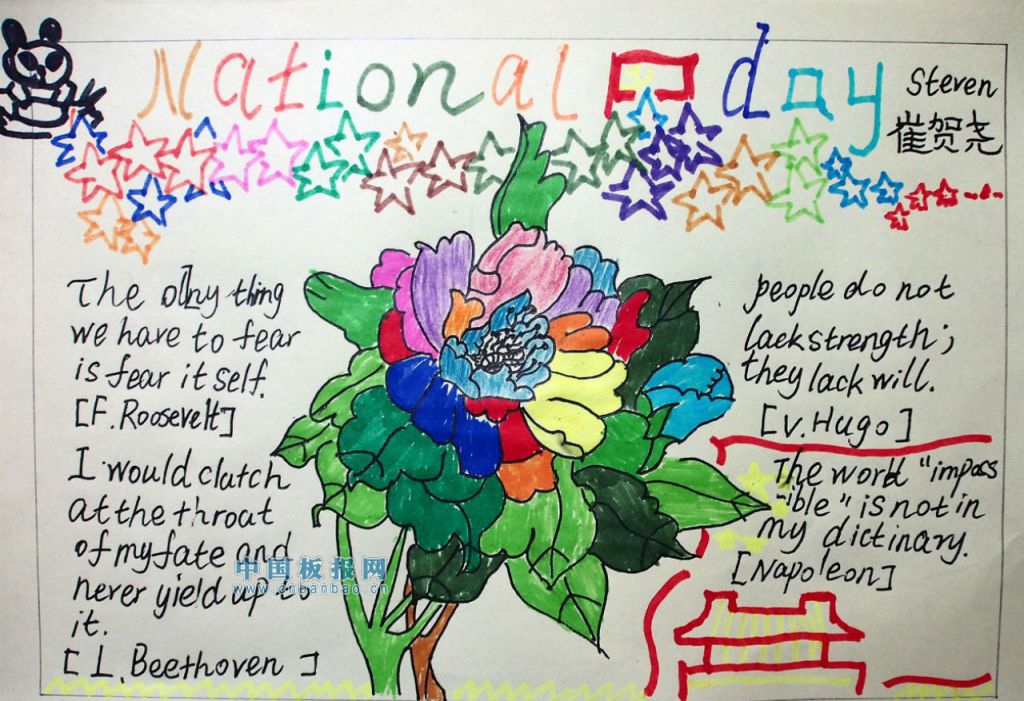 National day
Steven
崔贺尧
The olny thing
we have to fear
is fear itself.
[F. Roosevelt]
I would clutch
at the throat
of my fate and
never yield up to
it.
[L. Beethoven]
people do not
lack strength;
they lack will.
[V. Hugo]
The world "imposs
-ible" is not in
my dictinary.
[Napoleon]
中国板报网
www.cnbanbao.cn